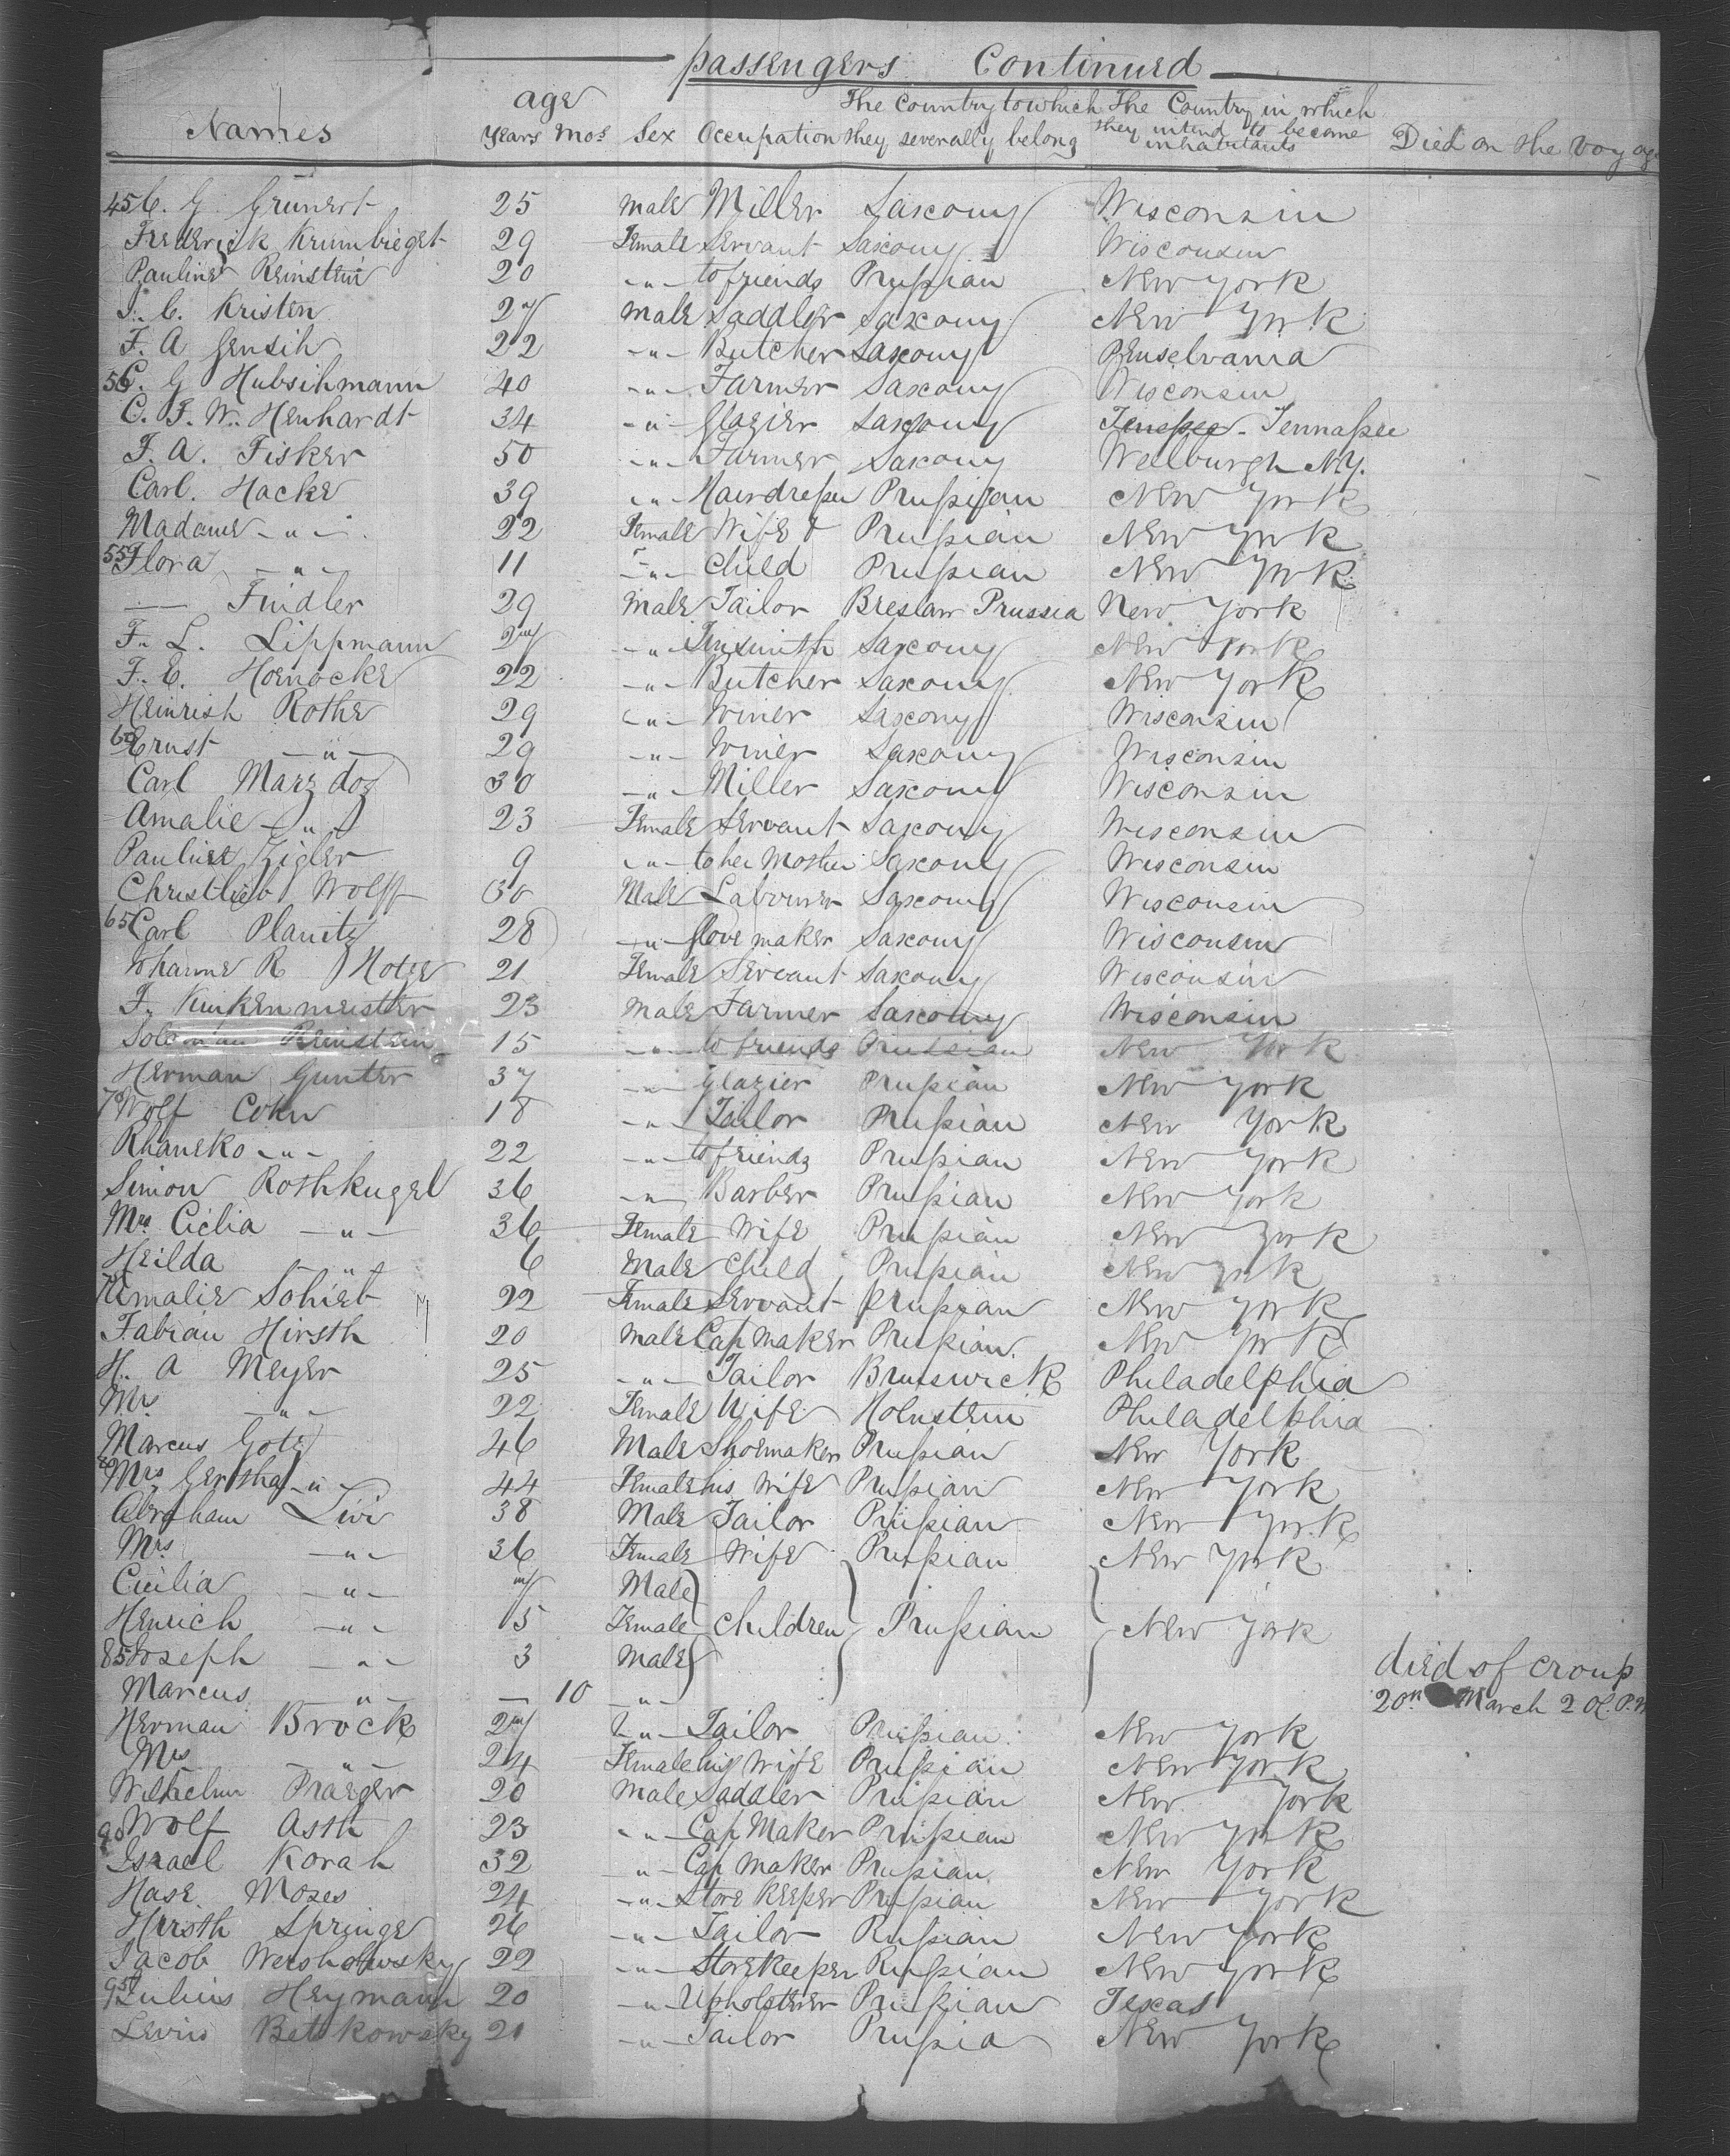 passengers Continued
Names age years mos Sex Occupation The Country to which they severally belong The Country in which they intend to become inhabitants Died on the Voyag
45 C. G. Grunert 25 male Miller Saxony Wisconsin
Frederick Krumbieget 29 Female Servant Saxony Wisconsin
Pauline Reinstein 20 -"- to friends Prussian New York
C. Kristen male Saddler Saxony New York
F. A Gensih 22 -"- Butcher Saxony Penselvania
50 C. G Hubsihmann 40 -"- Farmer Saxony Wisconsin
C. F. W. Henhardt 34 -"- Glazier Saxony Tennassee
F. A. Fisker 50 -"- Farmer Saxony Wellburgh N.Y.
Carl. Hacke 39 -"- Hairdresser Prussian New York
Madame -"- 22 Female Wife Prussian New York
55 Flora -"- 11 -"- Child Prussian New York
— Findler 29 male Tailor Breslaw Prussia New York
F. L. Lippmann -"- Tinsmith Saxony New York
F. E. Hoenocke 22 -"- Butcher Saxony New York
Heinrish Rothe 29 -"- Saxony Wisconsin
60 Ernst -"- 29 -"- Saxony Wisconsin
Carl Marzdoz 30 -"- Miller Saxony Wisconsin
Amalie -"- 23 Female Servant Saxony Wisconsin
Pauline Zigler 9 -"- to her Mother Saxony Wisconsin
Christlieb Wolff 30 Male Labourer Saxony Wisconsin
65 Carl Planitz 28 -"- Glove maker Saxony Wisconsin
R Hotze 21 Female Servant Saxony Wisconsin
F. Kunkenmeister 23 male Farmer Saxony Wisconsin
Soloman Reinstein 15 -"- to friends Prussian New York
Herman Gunter 37 -"- Glazier Prussian New York
70 Wolf Cohn 18 -"- Tailor Prussian New York
Rhaneko -"- 22 -"- to friends Prussian New York
Simon Rothkugel 36 -"- Barber Prussian New York
Mrs Ciclia -"- 36 Female Wife Prussian New York
Heilda -"- 6 Male Child Prussian New York
75 Amalie Sohiet 22 Female Servant prussian New York
Fabian Hirsth 20 male Cap maker Prussian New York
H. A Meyer 25 -"- Tailor Brunswick Philadelphia
Mrs -"- 22 Female Wife Holnstein Philadelphia
Marcus Gotz 46 Male Shoemaker Prussian New York
80 Mrs Gertsha -"- 44 Female his Wife Prussian New York
Abraham Livi 38 Male Tailor Prussian New York
Mrs -"- 36 Female Wife Prussian New York
Cicilia -"- Male
Henrich -"- 5 Female Children Prussian New York
85 Joseph -"- 3 Male died of croup
Marcus -"- — 10 -"- 20th March 2 Ol. P.M
Herman Brock -"- Tailor Prussian New York
Mrs -"- 24 Female his Wife Prussian New York
Wilhelm Praeger 20 Male Saddler Prussian New York
90 Wolf Asth 23 -"- Cap Maker Prussian New York
Israel Korah 32 -"- Cap Maker Prussian New York
Hase Mozes 24 -"- Store Keeper Prussian New York
Hirsth Springe 26 -"- Tailor Russian New York
Jacob 22 -"- Storekeeper Russian New York
95 Julius Heymann 20 -"- Upholsterer Prussian Texas
Levin Betkowsky 21 -"- Tailor Prussia New York